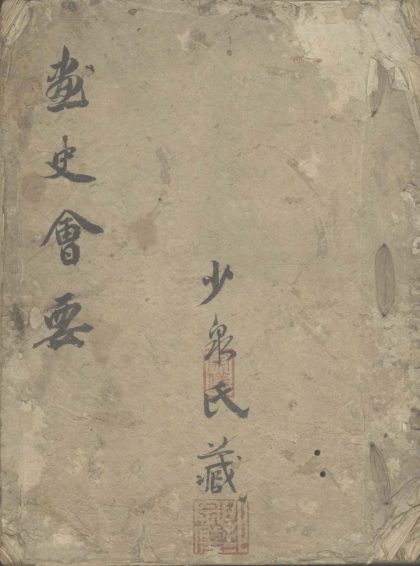 畫史會要
少泉氏藏